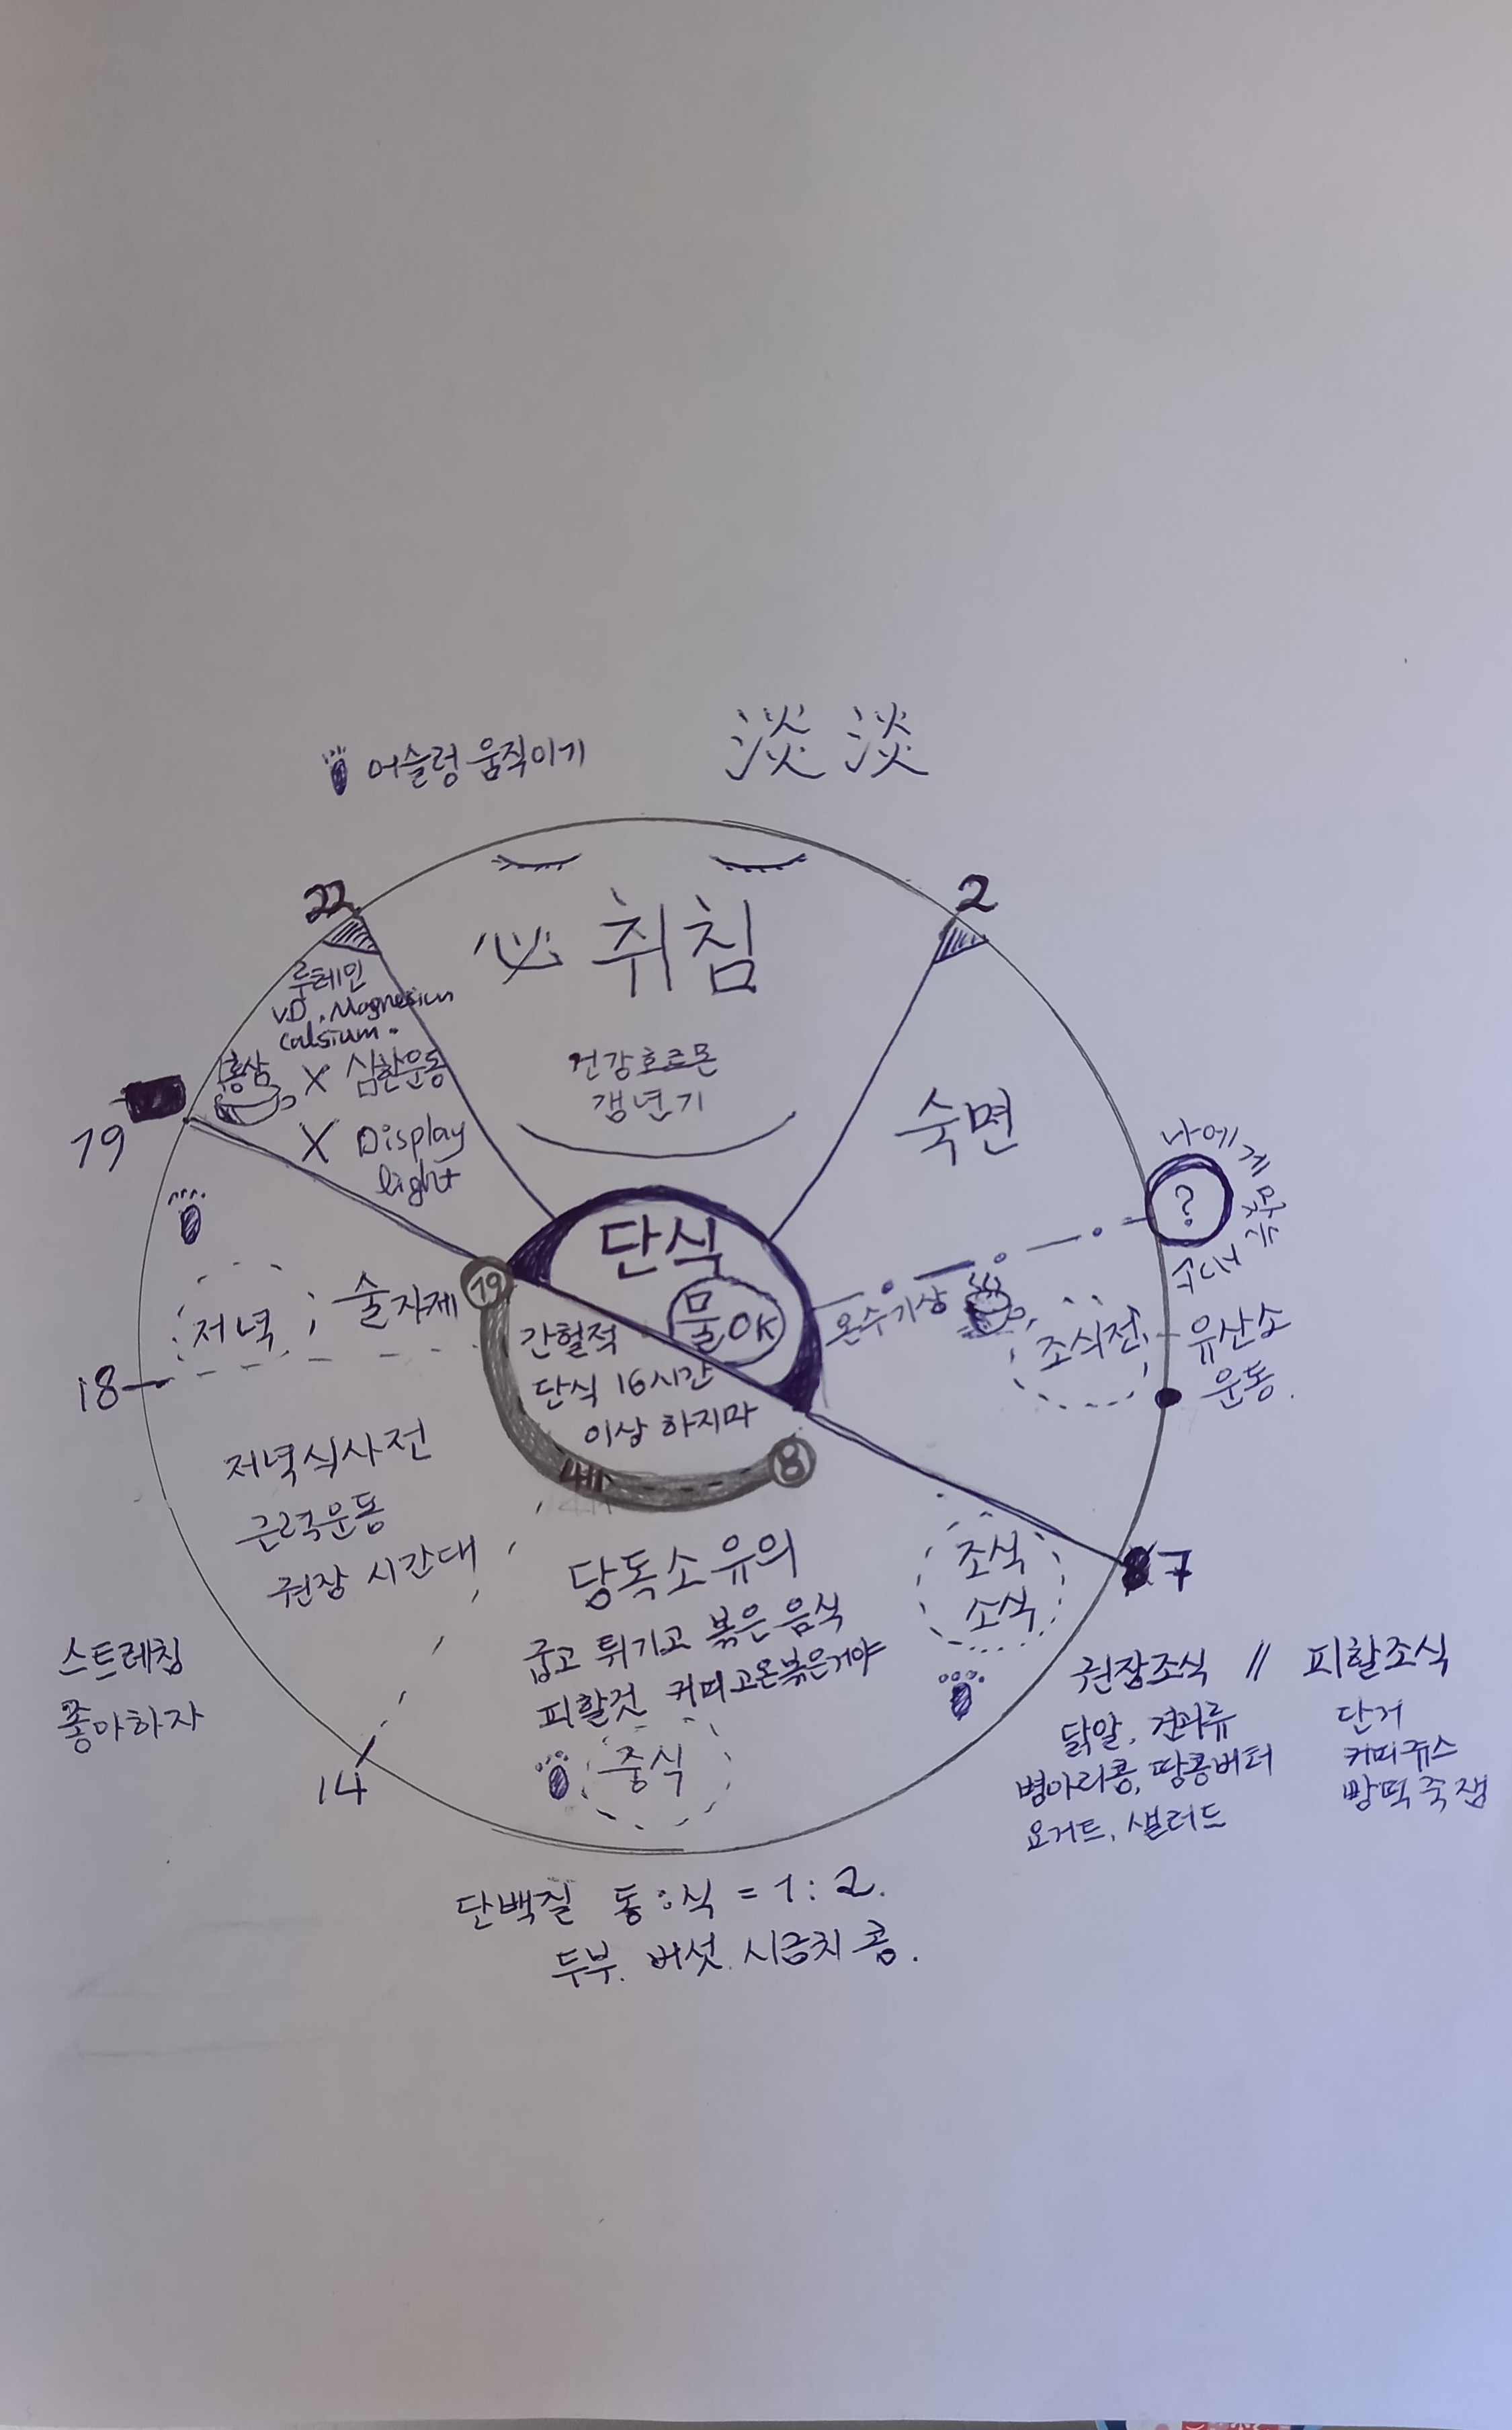 어슬렁 움직이기
淡淡
22
2
必 취침
루테인
VD. Magnesium
Calsium.
홍삼
X 심한운동
X Display
light
건강호르몬
갱년기
숙면
19
나에게 맞는
?
단식
물OK
19
저녁
술자제
18
간헐적
단식 16시간
이상 하지마
온수기상
조식전
유산소
운동.
8
저녁식사전
근력운동
권장 시간대
당독소유의
굽고 튀기고 볶은 음식
피할것 커피고온볶은거야
중식
조식
소식
7
스트레칭
좋아하자
14
권장조식 // 피할조식
닭알, 견과류
병아리콩, 땅콩버터
요거트, 샐러드
단거
커피쥬스
빵떡죽잼
단백질 동:식 = 1:2.
두부. 버섯. 시금치 콩.